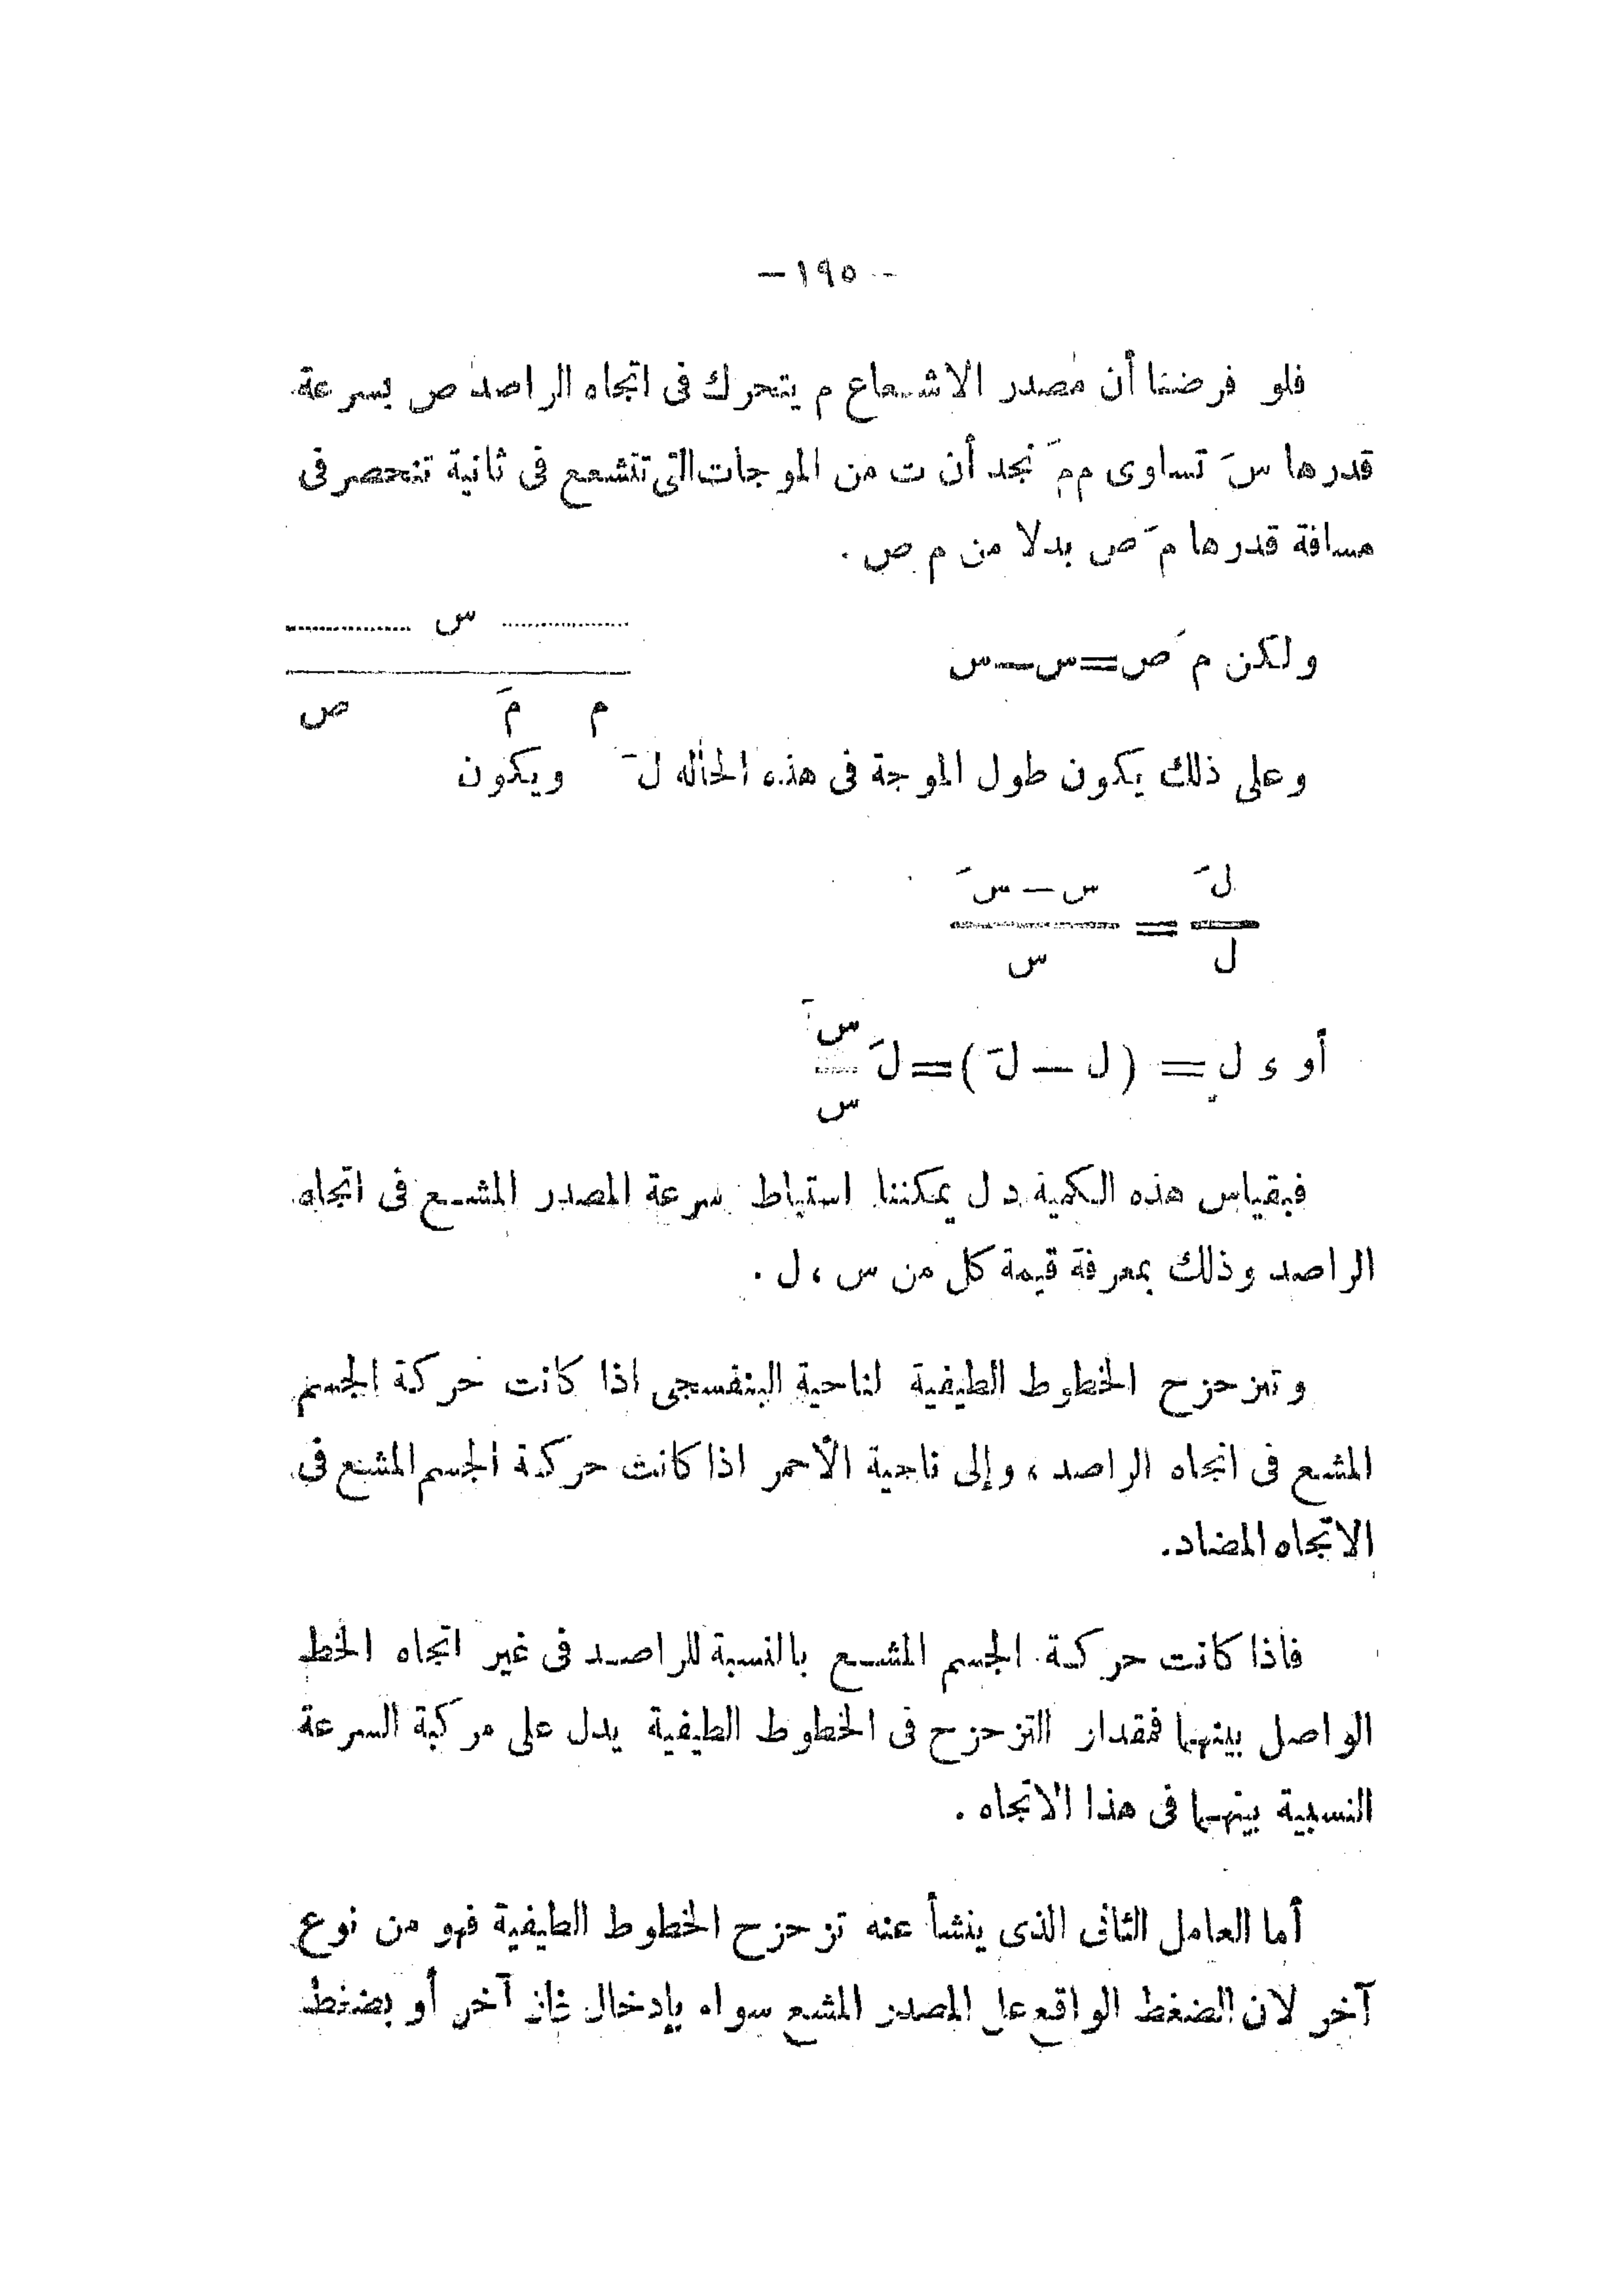 — ١٩٥ —
فلو فرضنا أن مصدر الاشعاع م يتحرك فى اتجاه الراصد ص بسرعة
قدرها سَ تساوى م مَ نجد أن ت من الموجات التى تتشعع فى ثانية تنحصر فى
مسافة قدرها مَ ص بدلا من م ص .
س
ولكن مَ ص = س — س
م مَ ص
وعلى ذلك يكون طول الموجة فى هذه الحاله لَ ويكون
لَ س — سَ
— = —
ل س
سَ
أو ء ل = ( ل — لَ ) = لَ —
س
فبقياس هذه الكمية د ل يمكننا استياط سرعة المصدر المشع فى اتجاه
الراصد وذلك بمعرفة قيمة كل من س ، ل .
وتتزحزح الخطوط الطيفية لناحية البنفسجى اذا كانت حركة الجسم
المشع فى اتجاه الراصد ، وإلى ناحية الأحمر اذا كانت حركة الجسم المشع فى
الاتجاه المضاد.
فاذا كانت حركة الجسم المشع بالنسبة للراصد فى غير اتجاه الخط
الواصل بينهما فمقدار التزحزح فى الخطوط الطيفية يدل على مركبة السرعة
النسبية بينهما فى هذا الاتجاه .
أما العامل الثانى الذى ينشأ عنه تزحزح الخطوط الطيفية فهو من نوع
آخر لان الضغط الواقع على المصدر المشع سواء بإدخال غاز آخر أو بضغط